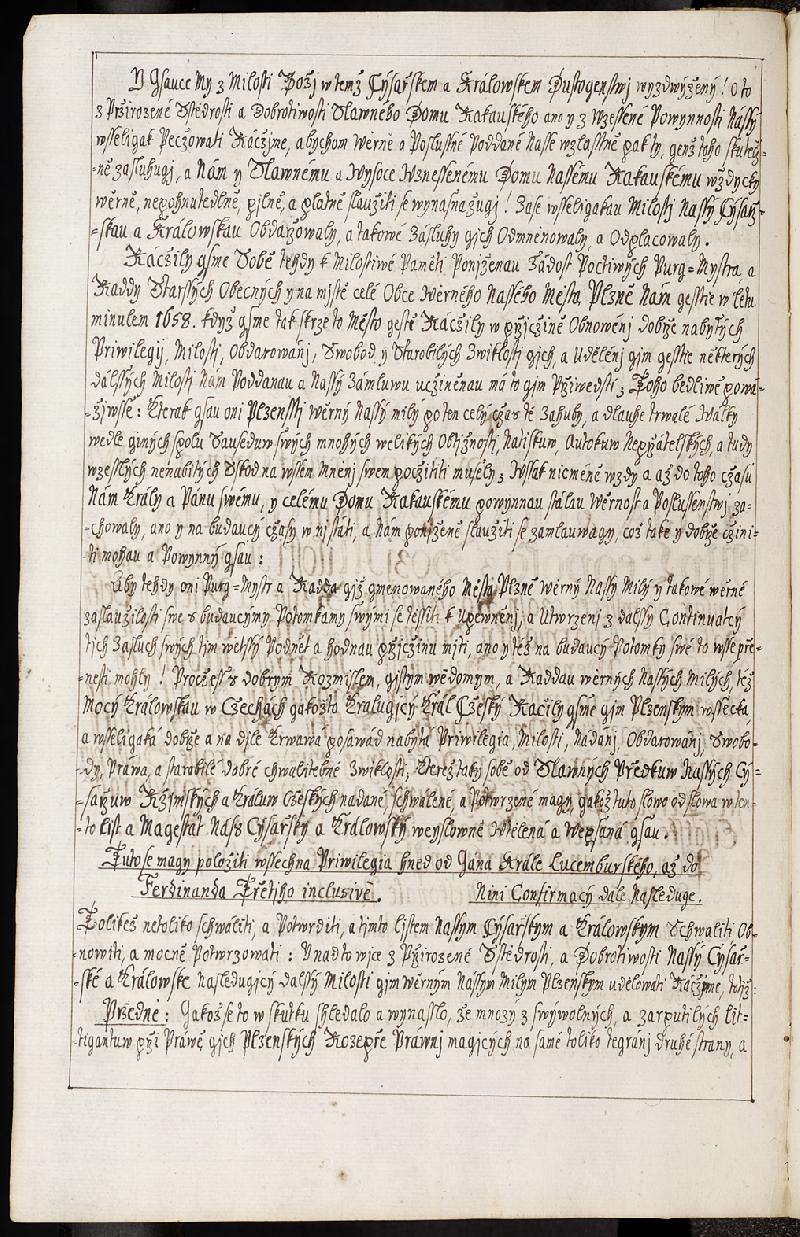 Y Gsauce My z Milosti Božj w temž Cýsařskem a Králowskem Dustogenstwj wyzdwýženy! O to
z Przirozené Sstědrosti a Dobrotiwosti Slawneho Domu Rakauského ano y z Wzessené Powynnosti Nassý
wsseligak Peczowati Ráczjme, abychom Wěrné a Poslussné Poddané Nasse wzlasstně pak ty, genž toho skutecž-
-ně zasluhugj, a Nám y Slawnému a Wysoce Wznessenému Domu Nassému Rakauskému wždýcky
wěrně, nepohnutedlně, pjlně, a platně slaužiti se wynasnažugj! Zase wsseligakau Milostj Nassý Cýsařž-
-skau a Králowskau Obdařowaly, a takowé Zásluhy gjch Odměnowaly, a Odplacowaly.
Ráczily gsme Sobě tehdy k Milostiwé Paměti Ponjženau Žádost Poctiwých Purg-Mystra a
Raddy Starssých Obecných y na mjstě celé Obce Wěrného Nasseho Města Plzně Nám gesstie w létu
minulem 1658. když gsme tak skrze to Město gestě Ráczily w přjcžině Obnowenj dobřže nabytých
Priwilegij, Milostj, Obdarowánj, Swobod, y Starobilých Zwiklostj gjch, a Udělenj gim gesstie některých
dálssých Milostj Nám Poddanau a Nassý Zámluwu ucžiněnau má to gim Přžiwedsti; Toho bedliwě powá-
-žjwsse: Kterak gsau oni Plzensstj wěrný Nassý milý po ten celý cžas té Záhuby, a dlauhe trwalé Wálky
wedle giných spolu Sauseduw swých mnohých welikých Obtjžnostj, Nátiskuw, Autokuw Nepřžátelských, a tudy
wzesslých nenabitých Sskod na wssem Mněnj swem pocžititi musely; Wssak nicméně wždy a až do toho cžasu
Nám Krály a Pánu swému, y celému Domu Rakauskému powynnau stálau Wěrnost a Poslussenstwj za-
-chowaly, ano y na budaucý cžasy w nj státi, a Nám ponjženě slaužiti se zamlauwagj, což také y dobřže cžini-
ti mohau a Powynný gsau:
Aby tehdy oni Purg-Mystr a Radda giž gmenowaného Města Plzně wěrný Nassý Milý y takowé wěrné
zaslaužilosti swé s budaucýmy Potomkamy swýmj se tessiti k upewněnj, a Utwrzenj z dalssý Continuatcý
tich Zásluch swých tim wětssý Podnět a hodnau přjcžinu mjti, ano y též na budaucý Potomky swé to wsse přé-
nesti mohly! Procžeš s dobrým Rozmislem, gistým wědomým, a Raddau wěrných Nassých Milých, též
Mocý Králowskau w Cžechách gakožto Kralugjcý Král Cžeský Raczily gsme gim Plzenským wssecka,
a wsseligaká dobřže a na djle krwawá posawád nabytá Priwilegia, Milosti, Nadánj, Obdarowánj, Swobo-
dy, Práwa, a starobilé dobré chwalitebné Zwiklosti, kteréž taky sobě od Slawných Předkuw Nassých Cý-
-saržuw Ržjmských a Králuw Cžeských nadané, schwálené, a Potwrzené magj, gakož tuto slowo od slowa w ten-
-to List a Magestát Náss Cýsařský a Králowský weyslowně Wdělená a Wepsaná gsau.
Tuto se magy položiti wssechna Priwilegia hned od Gana Krále Lucemburského, až do
Ferdinanda Třetjho inclusivé. Nini Confirmacý dále Nasleduge.
Tolikéš netoliko schwáliti, a Potwrditi, a tjmto Listem Nassým Cýsařským a Králowským Schwaliti Ob-
-nowiti, a mocně Potwrzowati: Y nad to wjce z Přžirozené Sstědrosti, a Dobrotiwosti Nassý Cýsař-
-ské a Králowske Následugjcý dalssý Milosti gim wěrným Nassým Milým Plzenským udělowati Ráczjme, totiž
Předně: Gakož se to w skutku shledalo a wynasslo, že mnozý z swýwolných, a zarputilých Lit-
-tigantuw přži Práwě gich Plzenských Rozepře Práwnj magjcých na samé toliko tegránj druhé strany, a